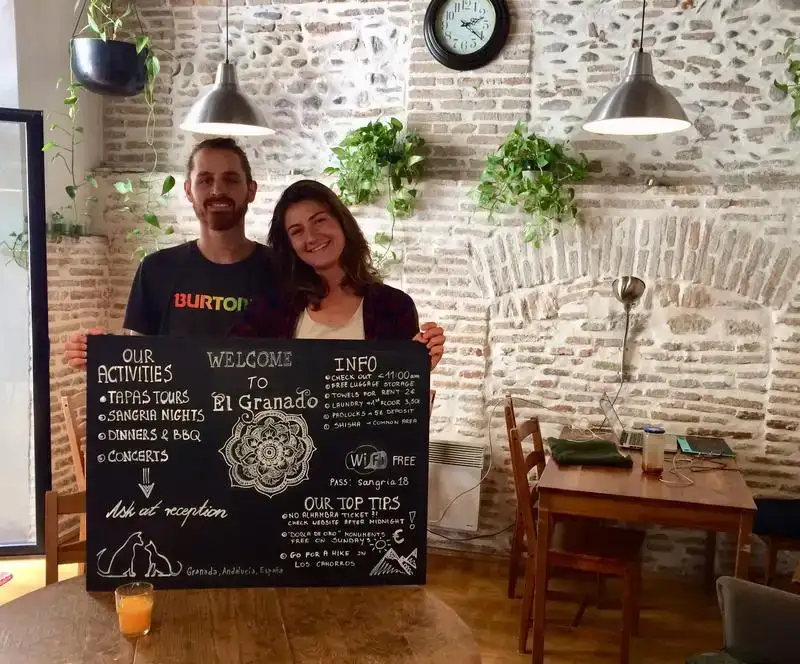 BURTON
OUR
ACTIVITIES
TAPAS TOURS
SANGRIA NIGHTS
DINNERS & BBQ
CONCERTS
Ask at reception
WELCOME
TO
El Granado
Granada, Andalucía, España
INFO
CHECK OUT <11:00am
FREE LUGGAGE STORAGE
TOWELS FOR RENT 2€
LAUNDRY 1st FLOOR 3,50
PADLOCKS = 5€ DEPOSIT
SHISHA COMMON AREA
WiFi FREE
PASS: sangria18
OUR TOP TIPS
NO ALHAMBRA TICKET?!
CHECK WEBSITE AFTER MIDNIGHT!
MONUMENTS
FREE ON SUNDAYS
€
GO FOR A HIKE IN
LOS CAHORROS